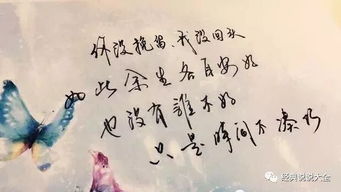 你没挽留,我没回头
如此余生各自安好
也没有誰不好
只是時间不凑巧
经典说说大全